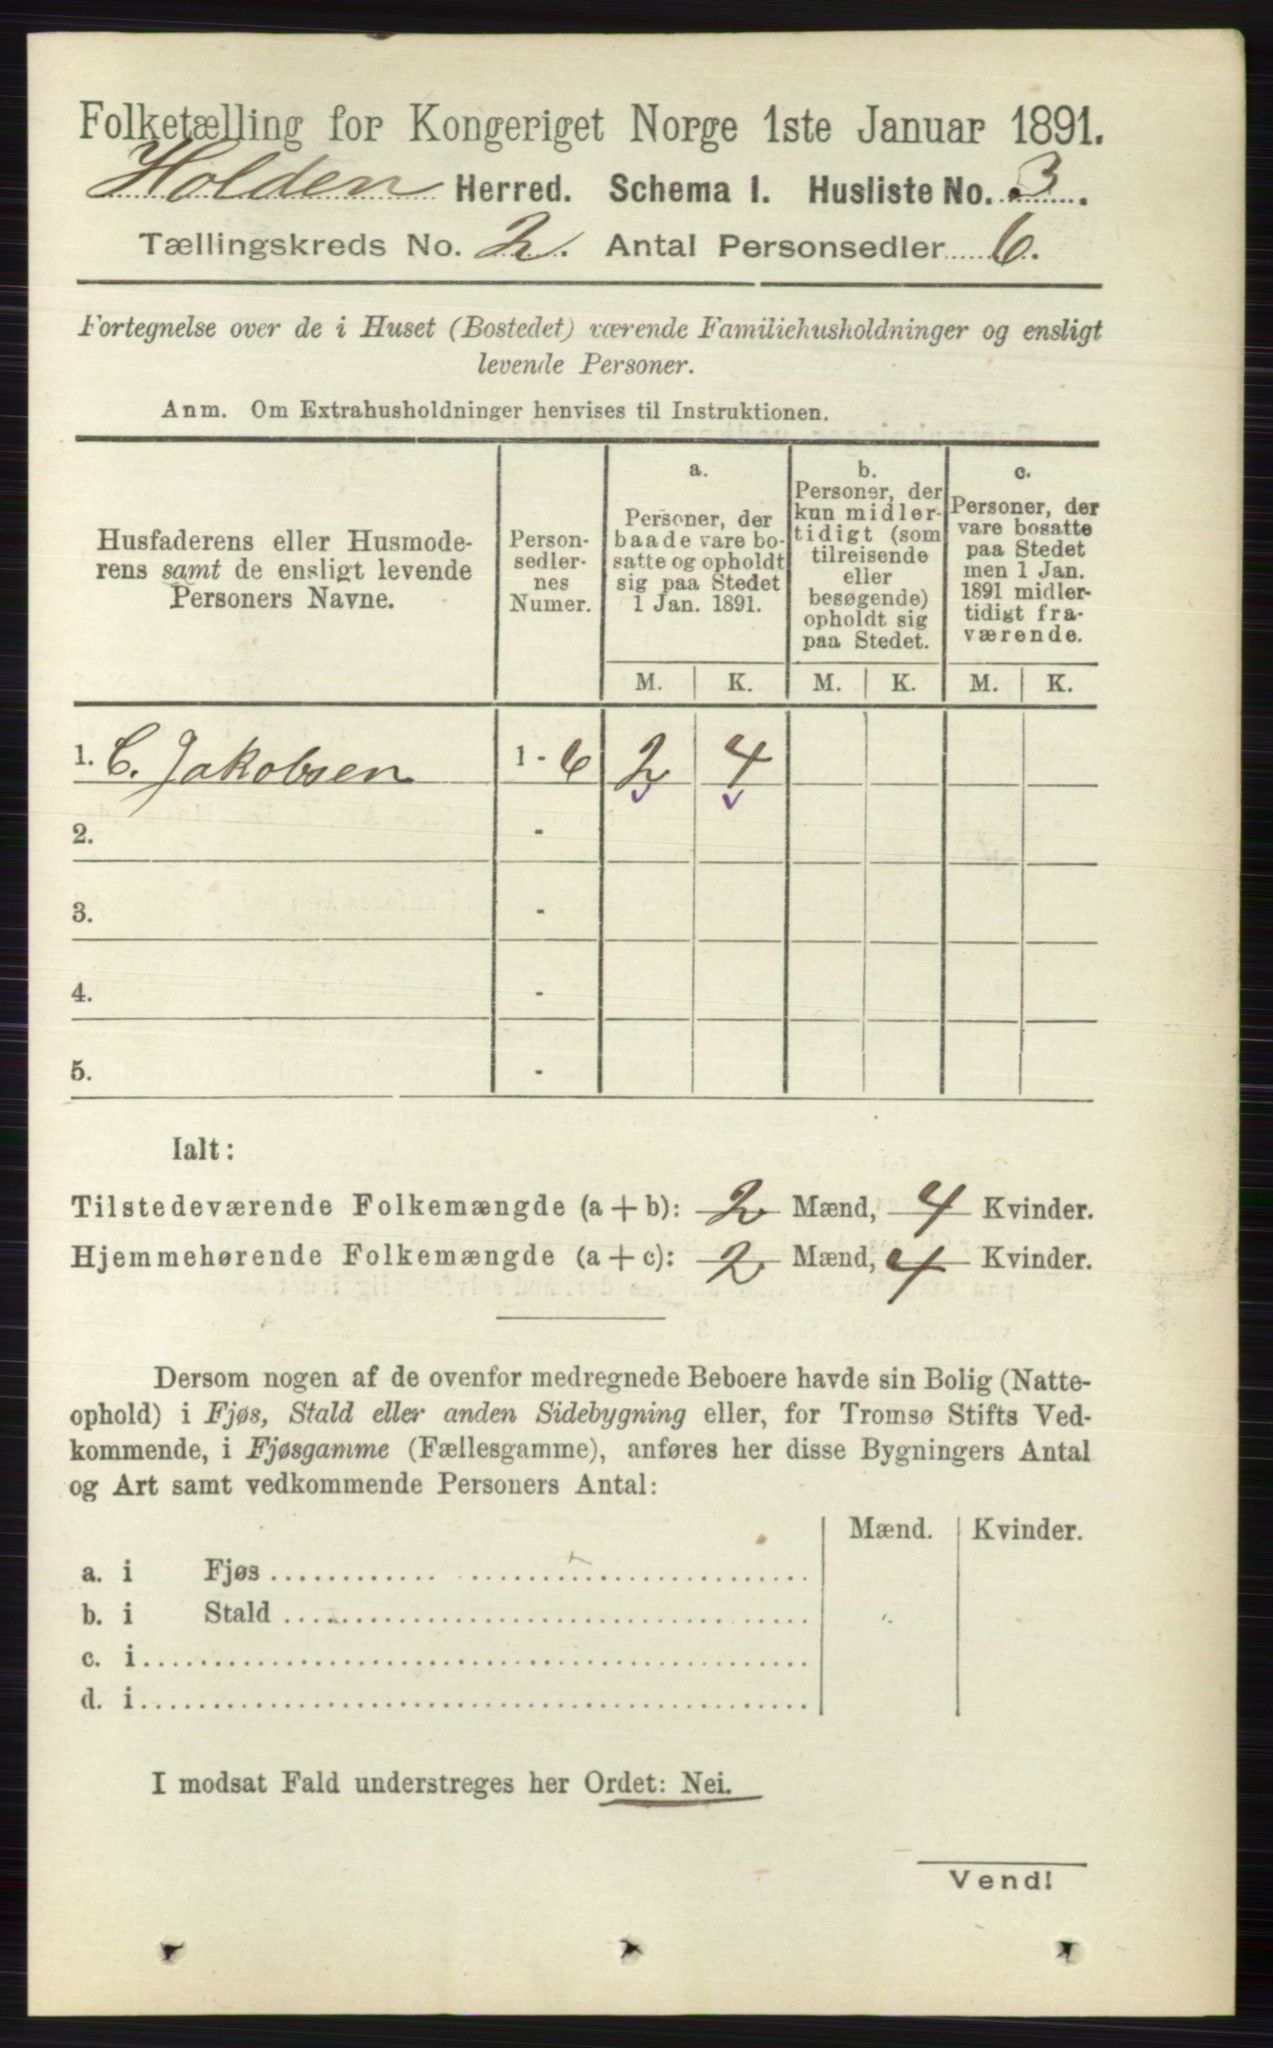 Folketælling for Kongeriget Norge 1ste Januar 1891.
Holden Herred. Schema I. Husliste No. 3.
Tællingskreds No. 2. Antal Personsedler 6.
Fortegnelse over de i Huset (Bostedet) værende Familiehusholdninger og ensligt
levende Personer.
Anm. Om Extrahusholdninger henvises til Instruktionen.
Husfaderens eller Husmode-
rens samt de ensligt levende
Personers Navne.
Person-
sedler-
nes
Numer.
a.
Personer, der
baade vare bo-
satte og opholdt
sig paa Stedet
1 Jan. 1891.
b.
Personer, der
kun midler-
tidigt (som
tilreisende
eller
besøgende)
opholdt sig
paa Stedet.
c.
Personer, der
vare bosatte
paa Stedet
men 1 Jan.
1891 midler-
tidigt fra-
værende.
M. K. M. K. M. K.
1. C. Jakobsen 1 - 6 2 4
2. -
3. -
4. -
5. -
Ialt:
Tilstedeværende Folkemængde (a + b): 2 Mænd, 4 Kvinder.
Hjemmehørende Folkemængde (a + c): 2 Mænd, 4 Kvinder.
Dersom nogen af de ovenfor medregnede Beboere havde sin Bolig (Natte-
ophold) i Fjøs, Stald eller anden Sidebygning eller, for Tromsø Stifts Ved-
kommende, i Fjøsgamme (Fællesgamme), anføres her disse Bygningers Antal
og Art samt vedkommende Personers Antal:
Mænd. Kvinder.
a. i Fjøs
b. i Stald
c. i
d. i
I modsat Fald understreges her Ordet: Nei.
Vend!